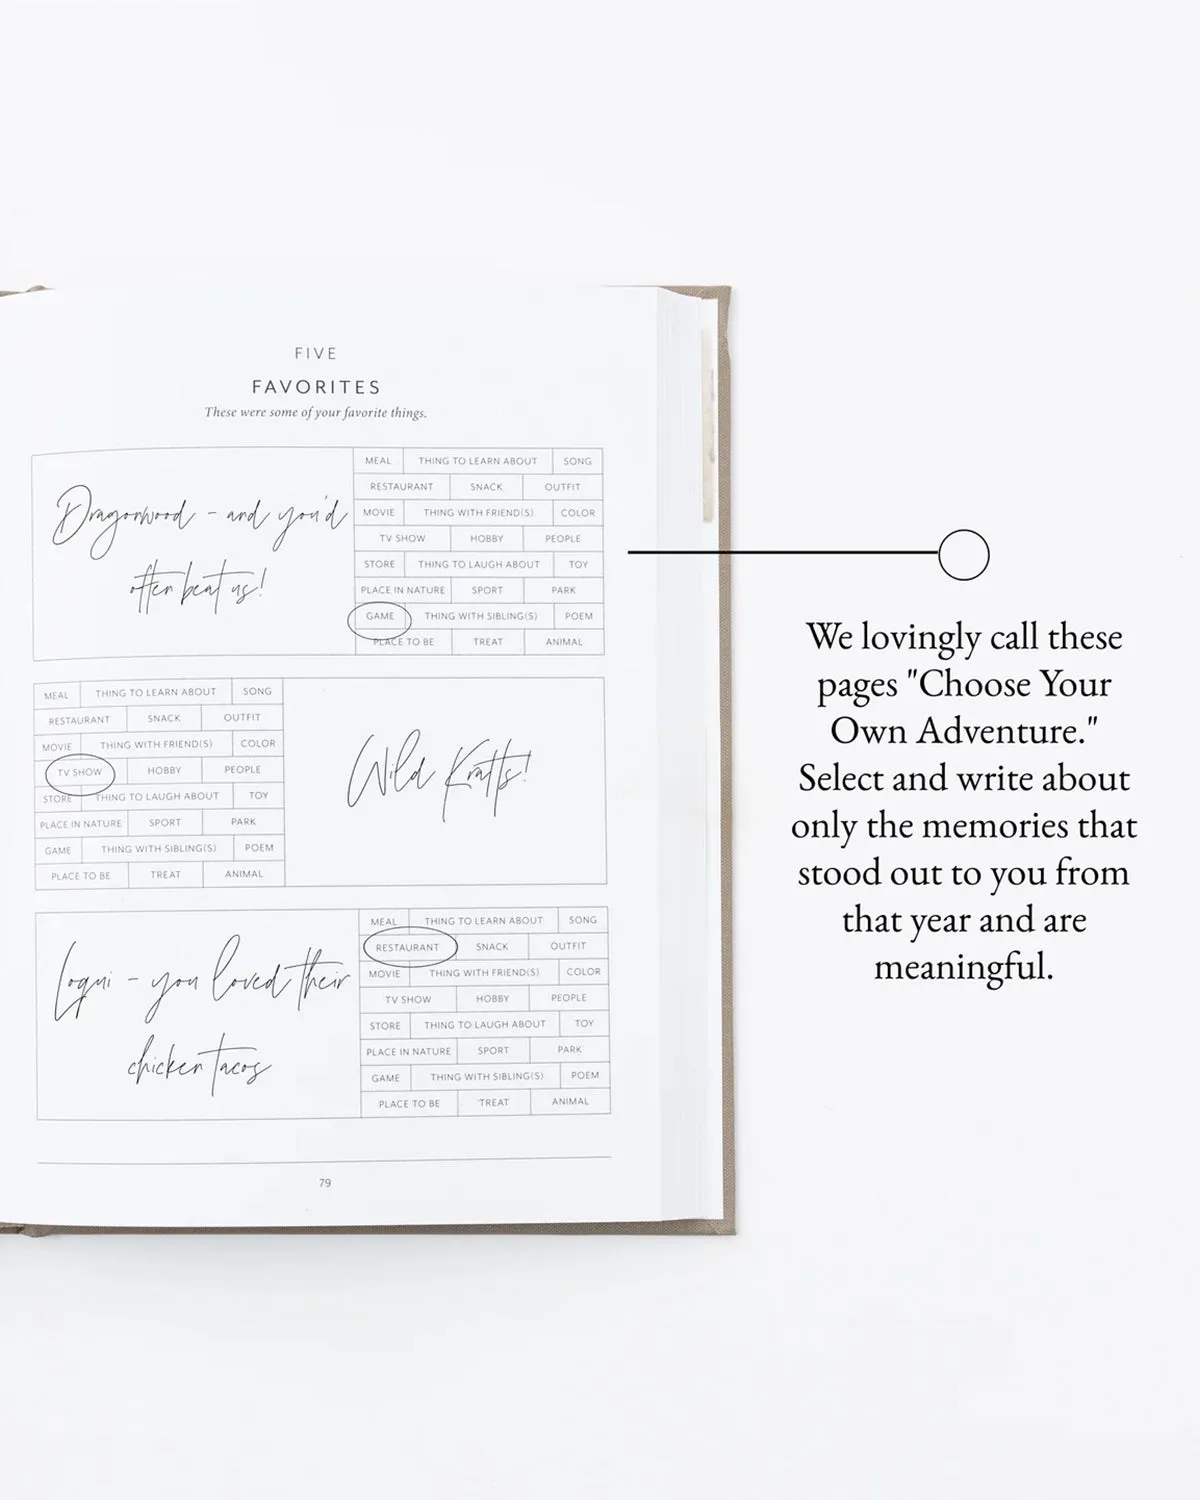 FIVE
FAVORITES
These were some of your favorite things.
Dragonwood - and you'd
often beat us!
MEAL THING TO LEARN ABOUT SONG
RESTAURANT SNACK OUTFIT
MOVIE THING WITH FRIEND(S) COLOR
TV SHOW HOBBY PEOPLE
STORE THING TO LAUGH ABOUT TOY
PLACE IN NATURE SPORT PARK
GAME THING WITH SIBLING(S) POEM
PLACE TO BE TREAT ANIMAL
MEAL THING TO LEARN ABOUT SONG
RESTAURANT SNACK OUTFIT
MOVIE THING WITH FRIEND(S) COLOR
TV SHOW HOBBY PEOPLE
STORE THING TO LAUGH ABOUT TOY
PLACE IN NATURE SPORT PARK
GAME THING WITH SIBLING(S) POEM
PLACE TO BE TREAT ANIMAL
Wild Kratts!
Loqui - you loved their
chicken tacos
MEAL THING TO LEARN ABOUT SONG
RESTAURANT SNACK OUTFIT
MOVIE THING WITH FRIEND(S) COLOR
TV SHOW HOBBY PEOPLE
STORE THING TO LAUGH ABOUT TOY
PLACE IN NATURE SPORT PARK
GAME THING WITH SIBLING(S) POEM
PLACE TO BE TREAT ANIMAL
79
We lovingly call these
pages "Choose Your
Own Adventure."
Select and write about
only the memories that
stood out to you from
that year and are
meaningful.